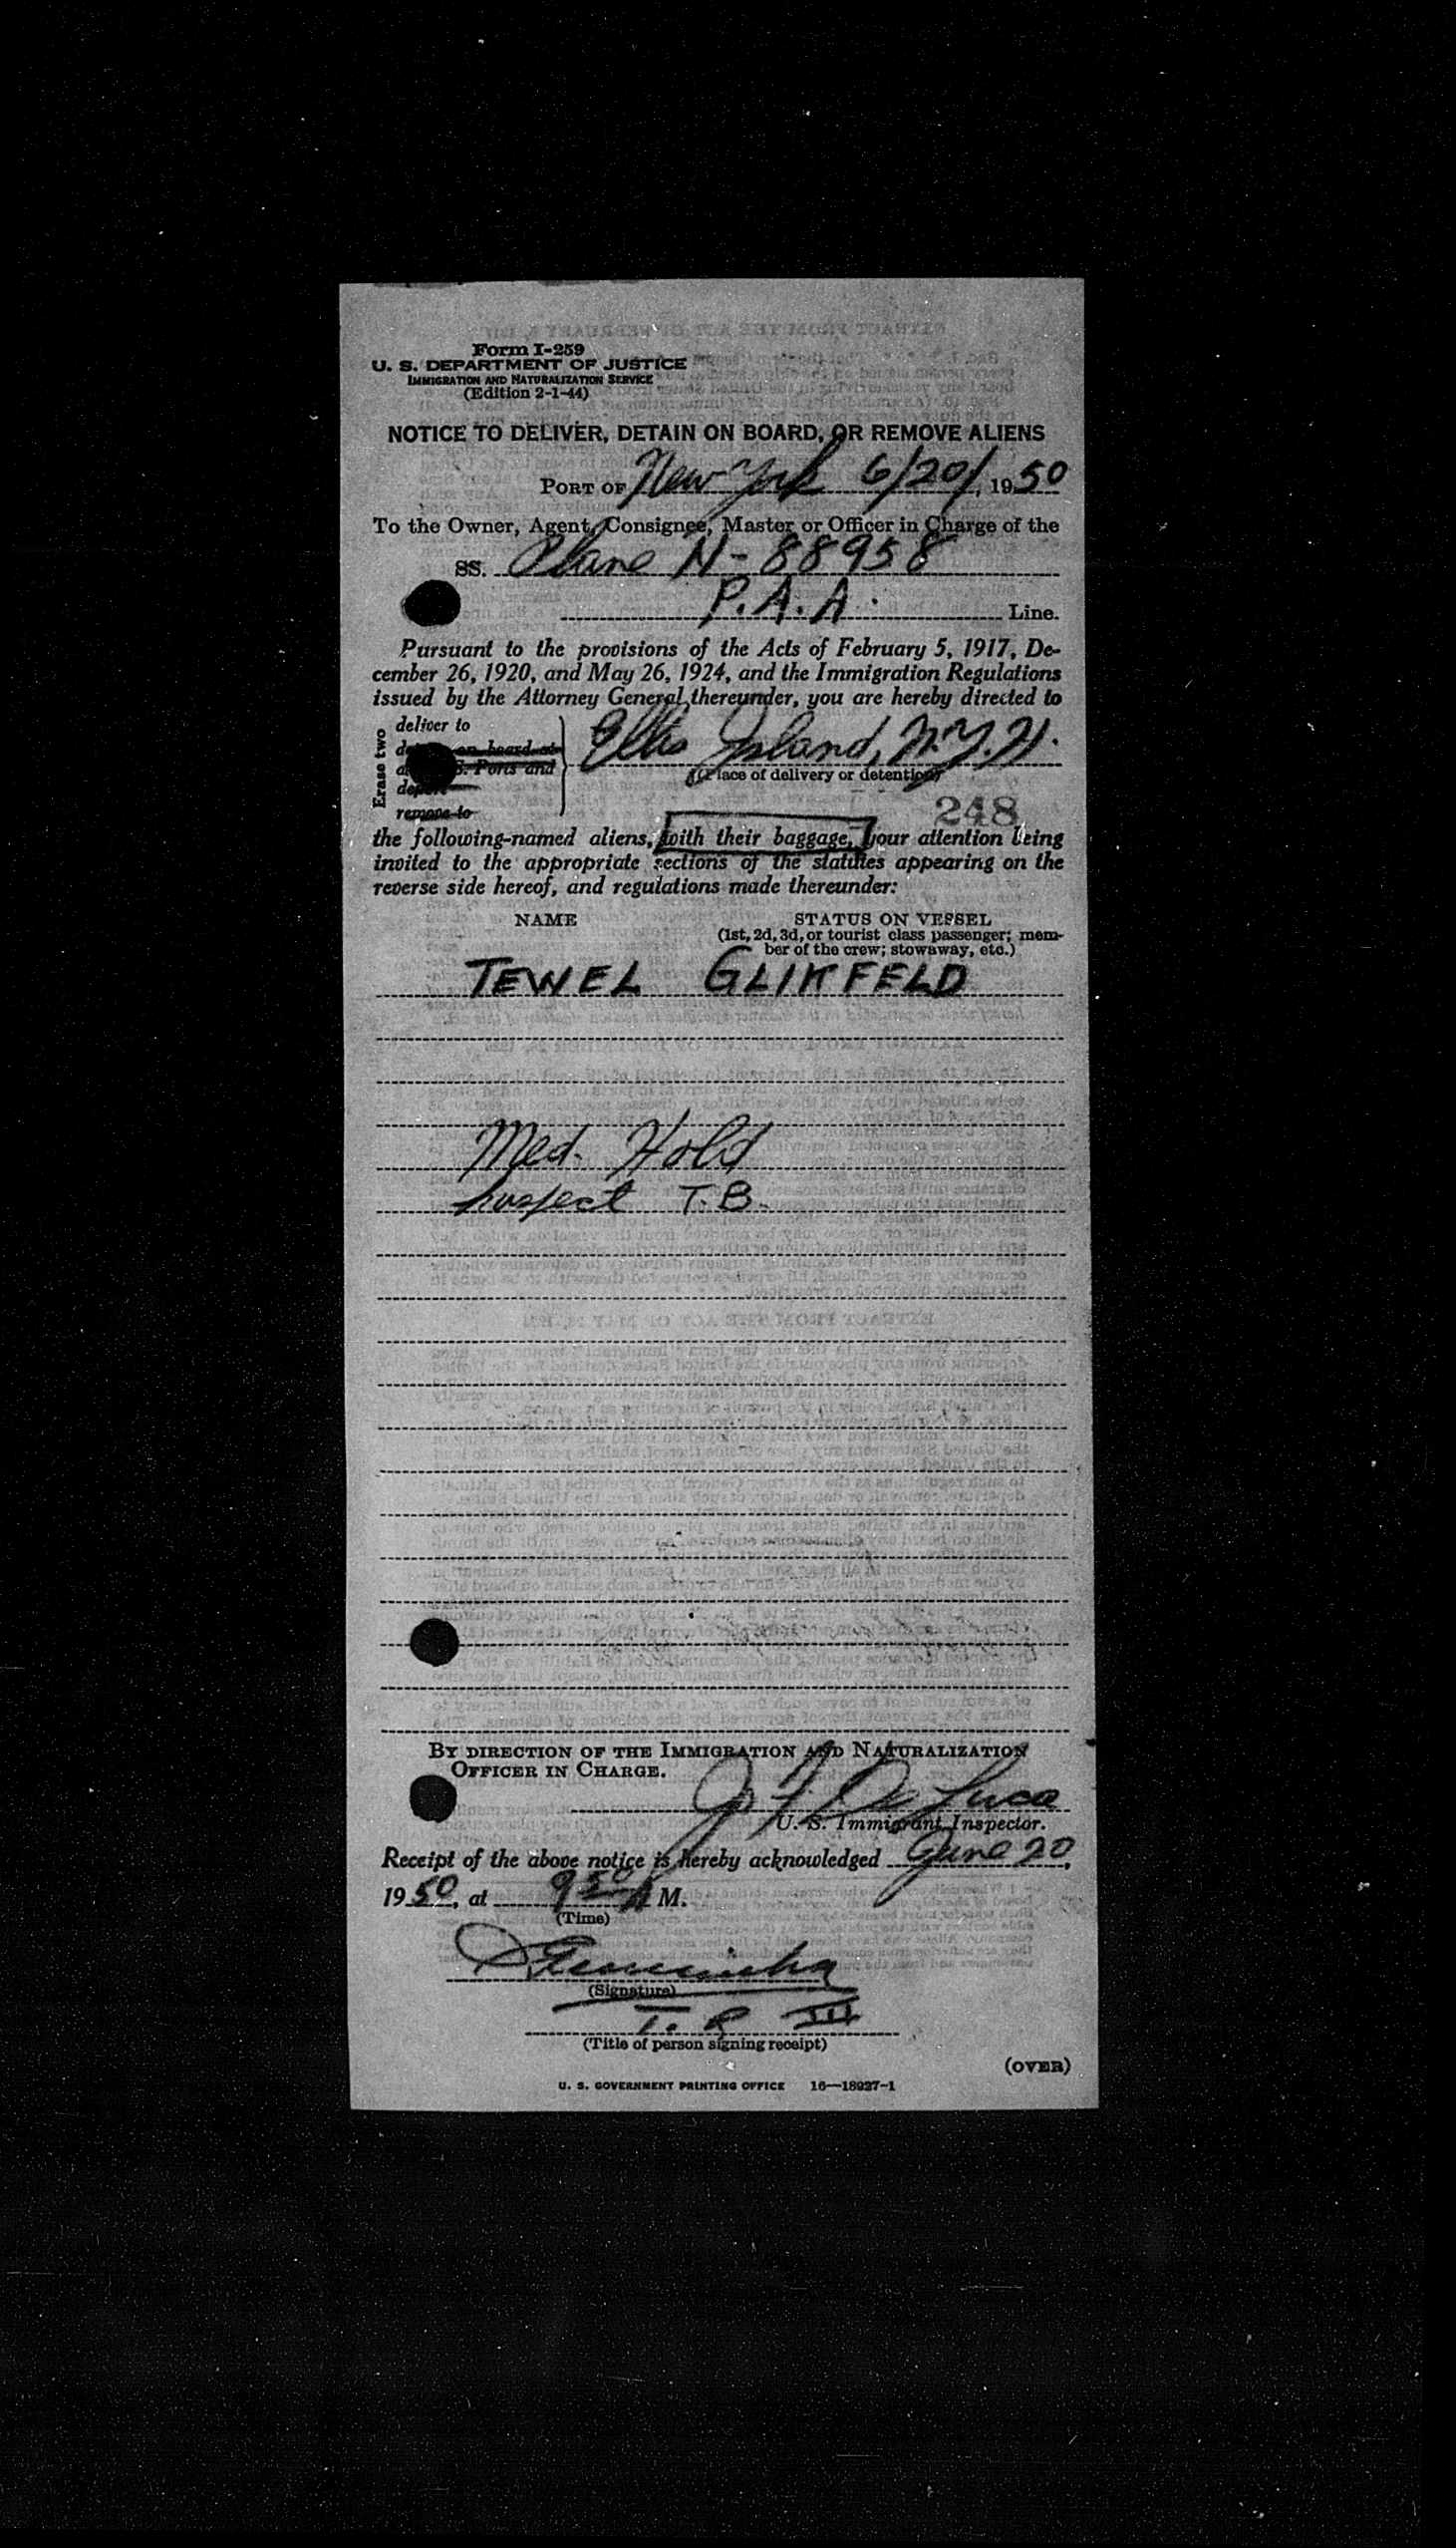 Form I-259
U. S. DEPARTMENT OF JUSTICE
IMMIGRATION AND NATURALIZATION SERVICE
(Edition 2-1-44)
NOTICE TO DELIVER, DETAIN ON BOARD, OR REMOVE ALIENS
PORT OF New York 6/20/, 1950
To the Owner, Agent, Consignee, Master or Officer in Charge of the
SS. Plane N-88958
P.A.A. Line.
Pursuant to the provisions of the Acts of February 5, 1917, De-
cember 26, 1920, and May 26, 1924, and the Immigration Regulations
issued by the Attorney General thereunder, you are hereby directed to
Erase two
deliver to
on board at
S. Ports and
remove to
Ellis Island, N.Y.H.
(Place of delivery or detention)
248
the following-named aliens, with their baggage, your attention being
invited to the appropriate sections of the statutes appearing on the
reverse side hereof, and regulations made thereunder:
NAME STATUS ON VESSEL
(1st, 2d, 3d, or tourist class passenger; mem-
ber of the crew; stowaway, etc.)
TEWEL GLIKFELD
Med. Hold
Suspect T.B.
BY DIRECTION OF THE IMMIGRATION AND NATURALIZATION
OFFICER IN CHARGE.
De Luca
U. S. Immigrant Inspector.
Receipt of the above notice is hereby acknowledged June 20,
1950, at 950 A M.
(Time)
(Signature)
T. R III
(Title of person signing receipt)
(OVER)
U. S. GOVERNMENT PRINTING OFFICE 16—18927-1